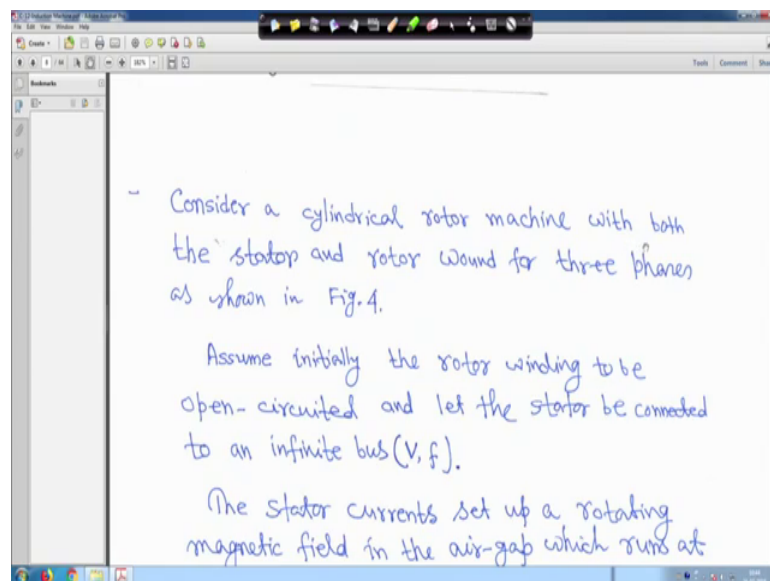 12-Induction Machine.pdf - Adobe Acrobat Pro
File Edit View Window Help
Create
Tools Comment
Bookmarks
Consider a cylindrical rotor machine with both
the stator and rotor wound for three phases
as shown in Fig. 4.
Assume initially the rotor winding to be
open-circuited and let the stator be connected
to an infinite bus (V, f).
The stator currents set up a rotating
magnetic field in the air-gap which runs at